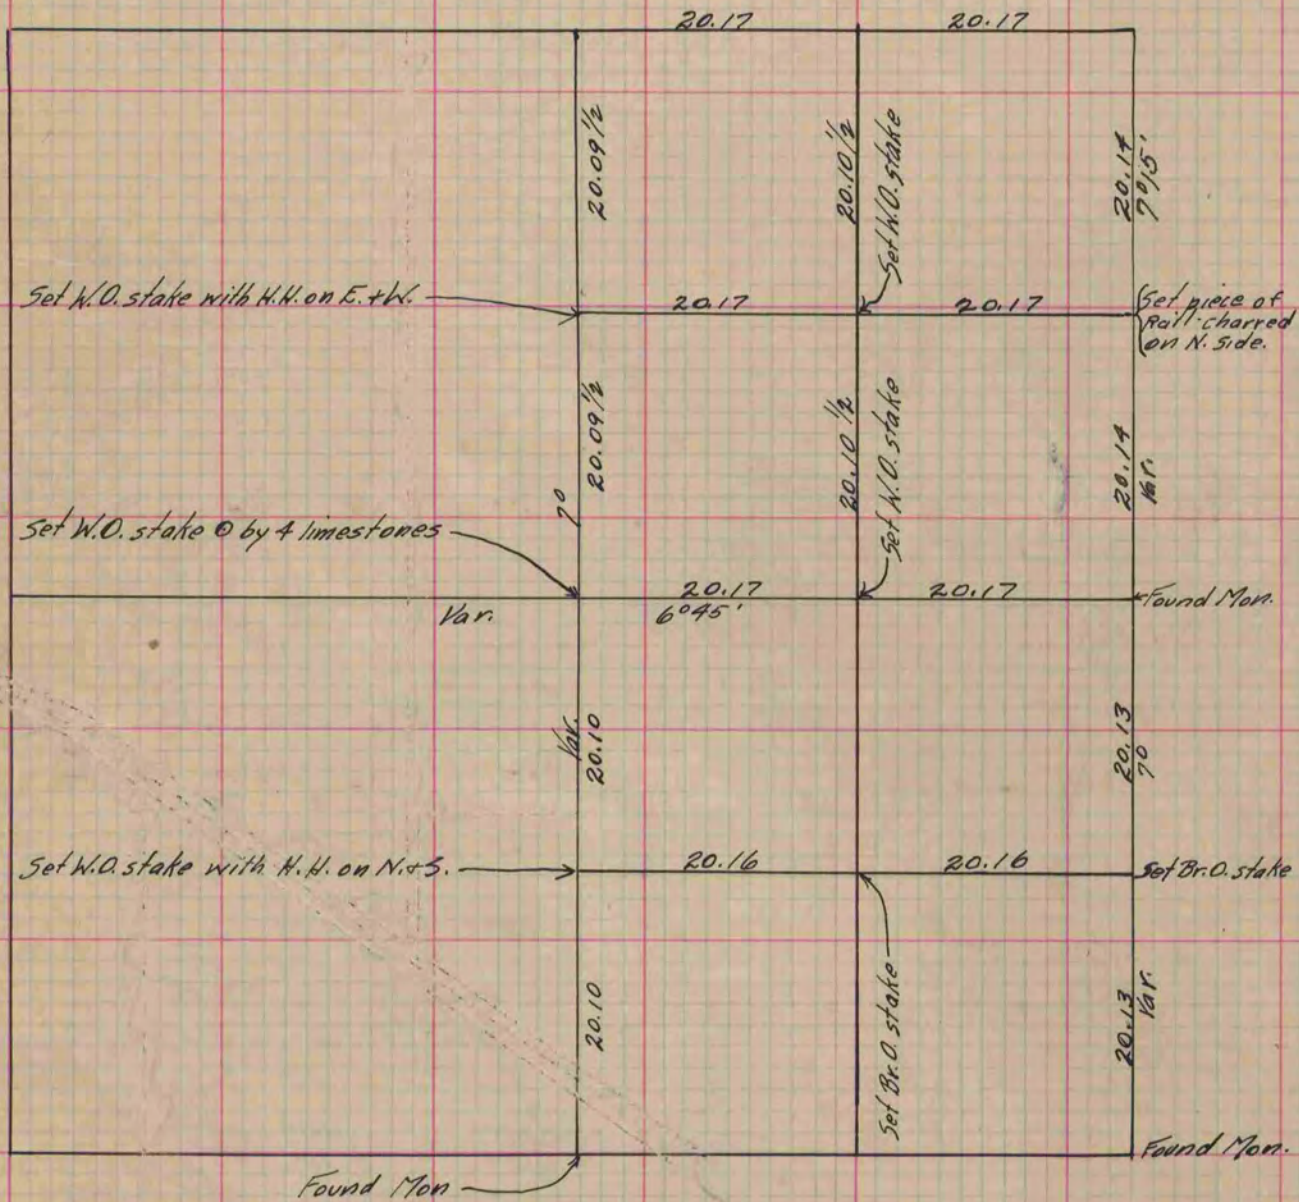 20.17 20.17
20.09 1/2
20.10 1/2
Set W.O. stake
20.14
7°15'
Set W.O. stake with H.H. on E. + W.
20.17 20.17
Set piece of
Rail charred
on N. Side.
20.09 1/2
7°
20.10 1/2
Set W.O. stake
20.14
Var.
Set W.O. stake ⊙ by 4 limestones
20.17 20.17
Var. 6°45'
Found Mon.
Var.
20.10
20.13
7°
Set W.O. stake with H.H. on N. + S.
20.16 20.16
Set Br.O. stake
20.10
Set Br.O. stake
20.13
Var.
Found Mon.
Found Mon